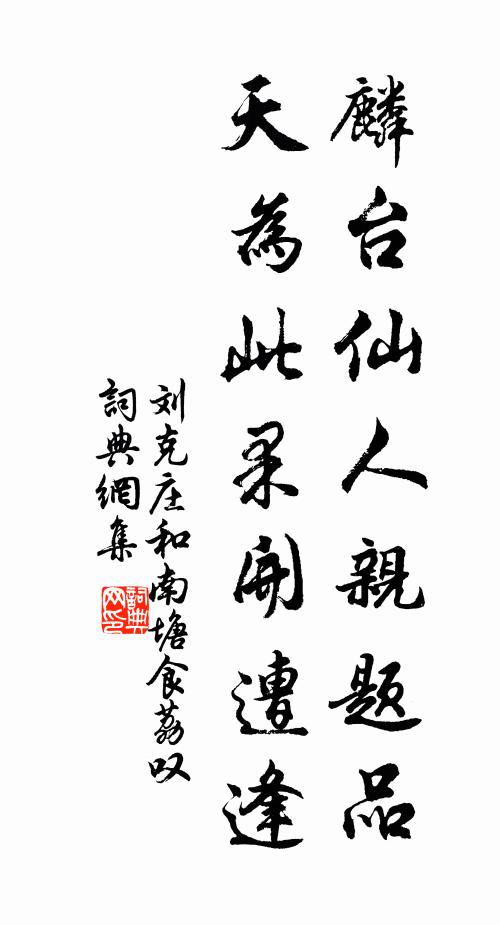 麟台仙人親題品
天為此果開遭逢
刘克庄和南塘食荔叹
詞典網集
詞典网印